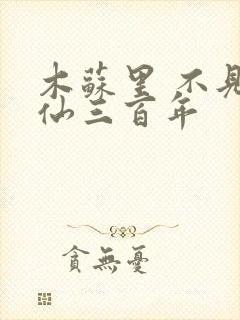 木蘇里 不見
仙三百年
貪無憂